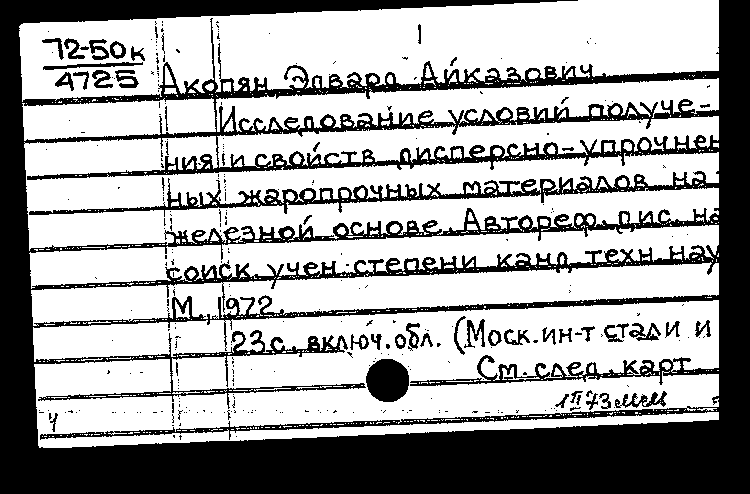 1
72-50к
4725
Акопян, Эдвард Айказович.
Исследование условий получе-
ния и свойств дисперсно-упрочнен
ных жаропрочных материалов на
железной основе. Автореф. дис. на
соиск. учен. степени канд. техн. нау
М., 1972.
23 с., включ. обл. (Моск. ин-т стали и
См. след. карт
1 II 73
ч